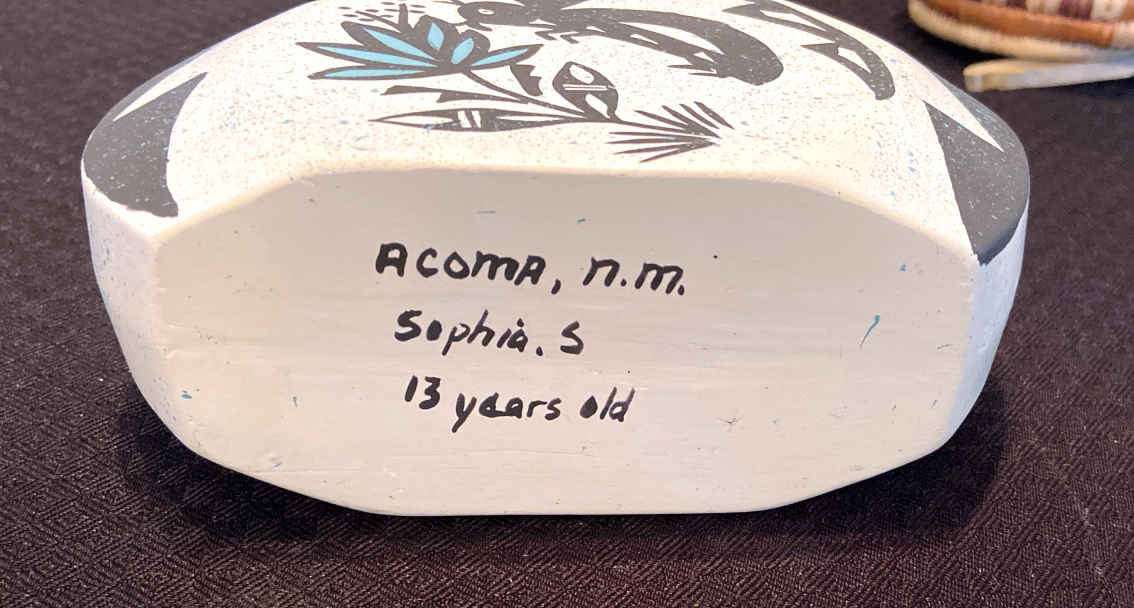 ACOMA, n.m.
Sophia. S
13 years old